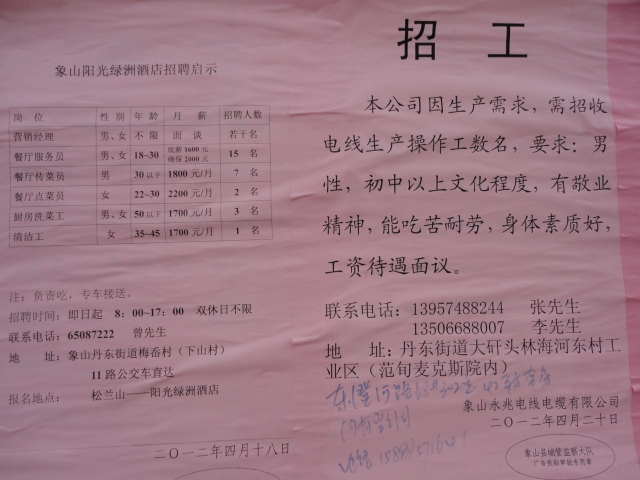 象山阳光绿洲酒店招聘启示
岗 位 性 别 年 龄 月 薪 招聘人数
营销经理 男、女 不 限 面 谈 若干名
餐厅服务员 男、女 18-30 底薪 1600元 确保 2000元 15 名
餐厅传菜员 男 30以下 1800元/月 7 名
餐厅点菜员 女 22-30 2200元/月 2 名
厨房洗菜工 男、女 50以下 1700元/月 3 名
清洁工 女 35-45 1700元/月 1 名
注:负责吃,专车接送。
招聘时间:即日起 8:00-17:00 双休日不限
联系电话:65087222 曾先生
地 址:象山丹东街道梅岙村(下山村)
11路公交车直达
报名地点:松兰山——阳光绿洲酒店
二〇一二年四月十八日
招 工
本公司因生产需求,需招收
电线生产操作工数名,要求:男
性,初中以上文化程度,有敬业
精神,能吃苦耐劳,身体素质好,
工资待遇面议。
联系电话:13957488244 张先生
13506688007 李先生
地 址:丹东街道大矸头林海河东村工
业区(范旬麦克斯院内)
象山永兆电线电缆有限公司
二〇一二年四月二十日
象山县城管监察大队
广告张贴审批专用章